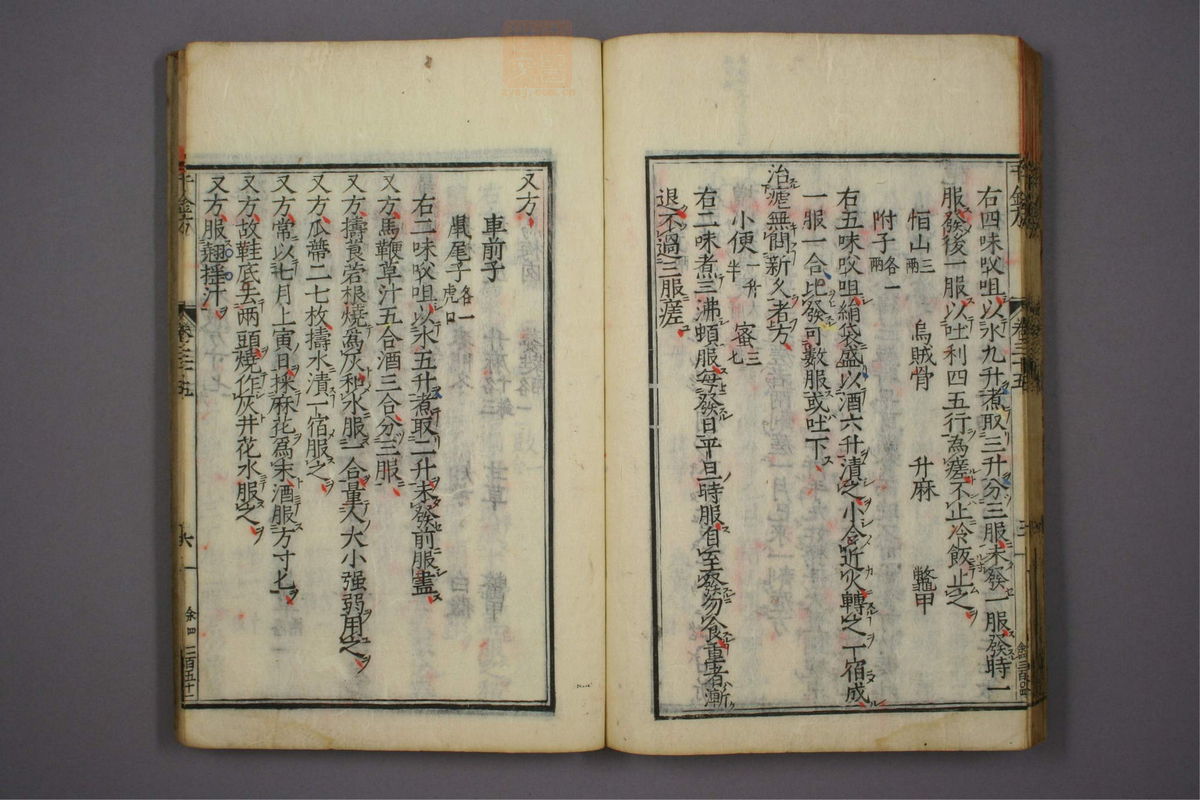 右四味㕮咀以水九升煮取三升分三服未發一服發時一
服發後一服以吐利四五行為瘥不止冷飯止之
恒山三兩 烏賊骨 升麻 鼈甲
附子各一兩
右五味㕮咀絹袋盛以酒六升漬之小令近火轉之一宿成
一服一合比發可數服或吐下
治瘧無問新久者方
小便一升半 蜜三七
右二味煮三沸頓服每發日平旦時服自至發勿食重者漸
退不過三服瘥
千金方
又方
車前子
鼠尾子各一虎口
右二味㕮咀以水五升煮取二升未發前服盡
又方馬鞭草汁五合酒三合分三服
又方擣莨菪根燒為灰和水服一合量人大小强弱用之
又方瓜蒂二七枚擣水漬一宿服之
又方常以七月上寅日採麻花為末酒服方寸匕
又方故鞋底去兩頭燒作灰井花水服之
又方服翹搖汁
千金方 卷三十五 六